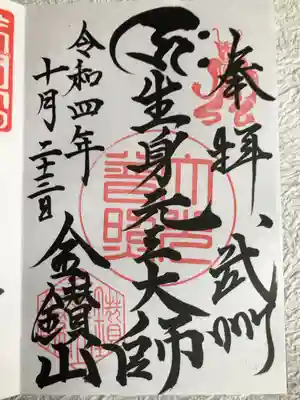 奉拝、武州
生身元三大師
金鑚山
令和四年
十月二十三日